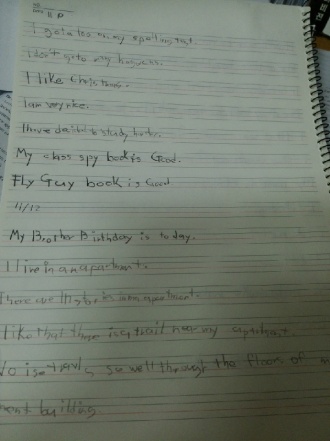 I got a ten in my spelling test.
I don't go to my
I like Christmas.
I am very nice.
I have decided to study
My class spy book is Good.
Fly Guy book is Good
11/12
My Brother Birthday is today.
I live in an apartment.
There are in apartment.
I like that there is a trail near my apartment.
travels so well through the floors of
ment building